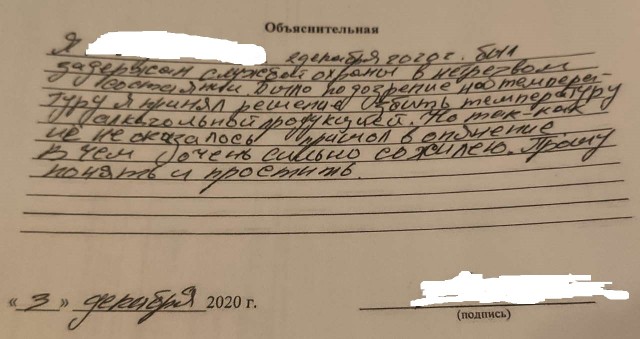 Объяснительная
Я декабря 2020 г. был
задержан службой охраны в нетрезвом
состаянии было подозрение на темпера-
туру я принял решение сбить температуру
алкогольной продукцией. Но так-как
не оказалось пришол в опянение
в чем очень сильно сожилею. Прошу
понять и простить.
« 3 » декабря 2020 г.
(подпись)